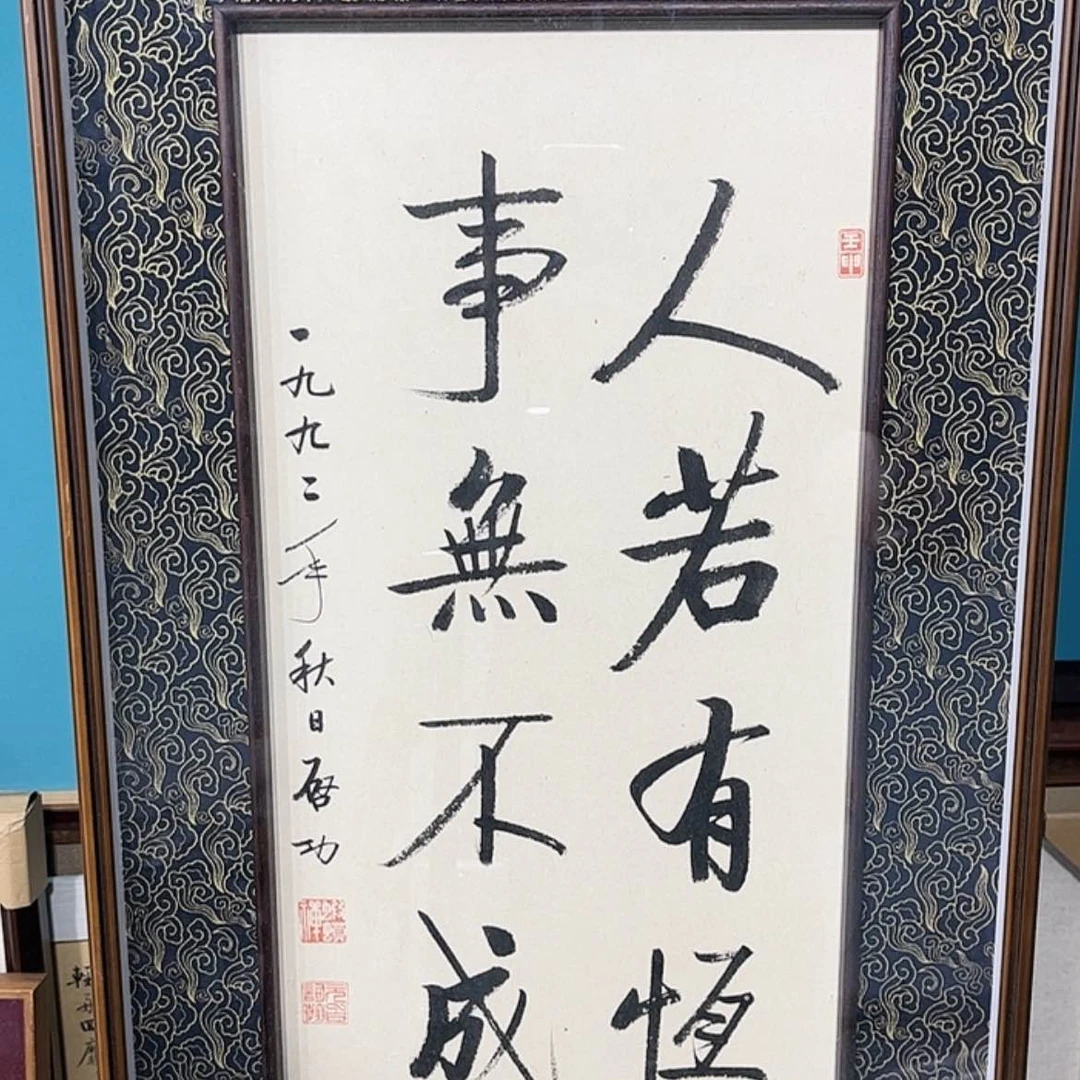 人若有恆
事無不成
一九九二年秋日啓功
壬申